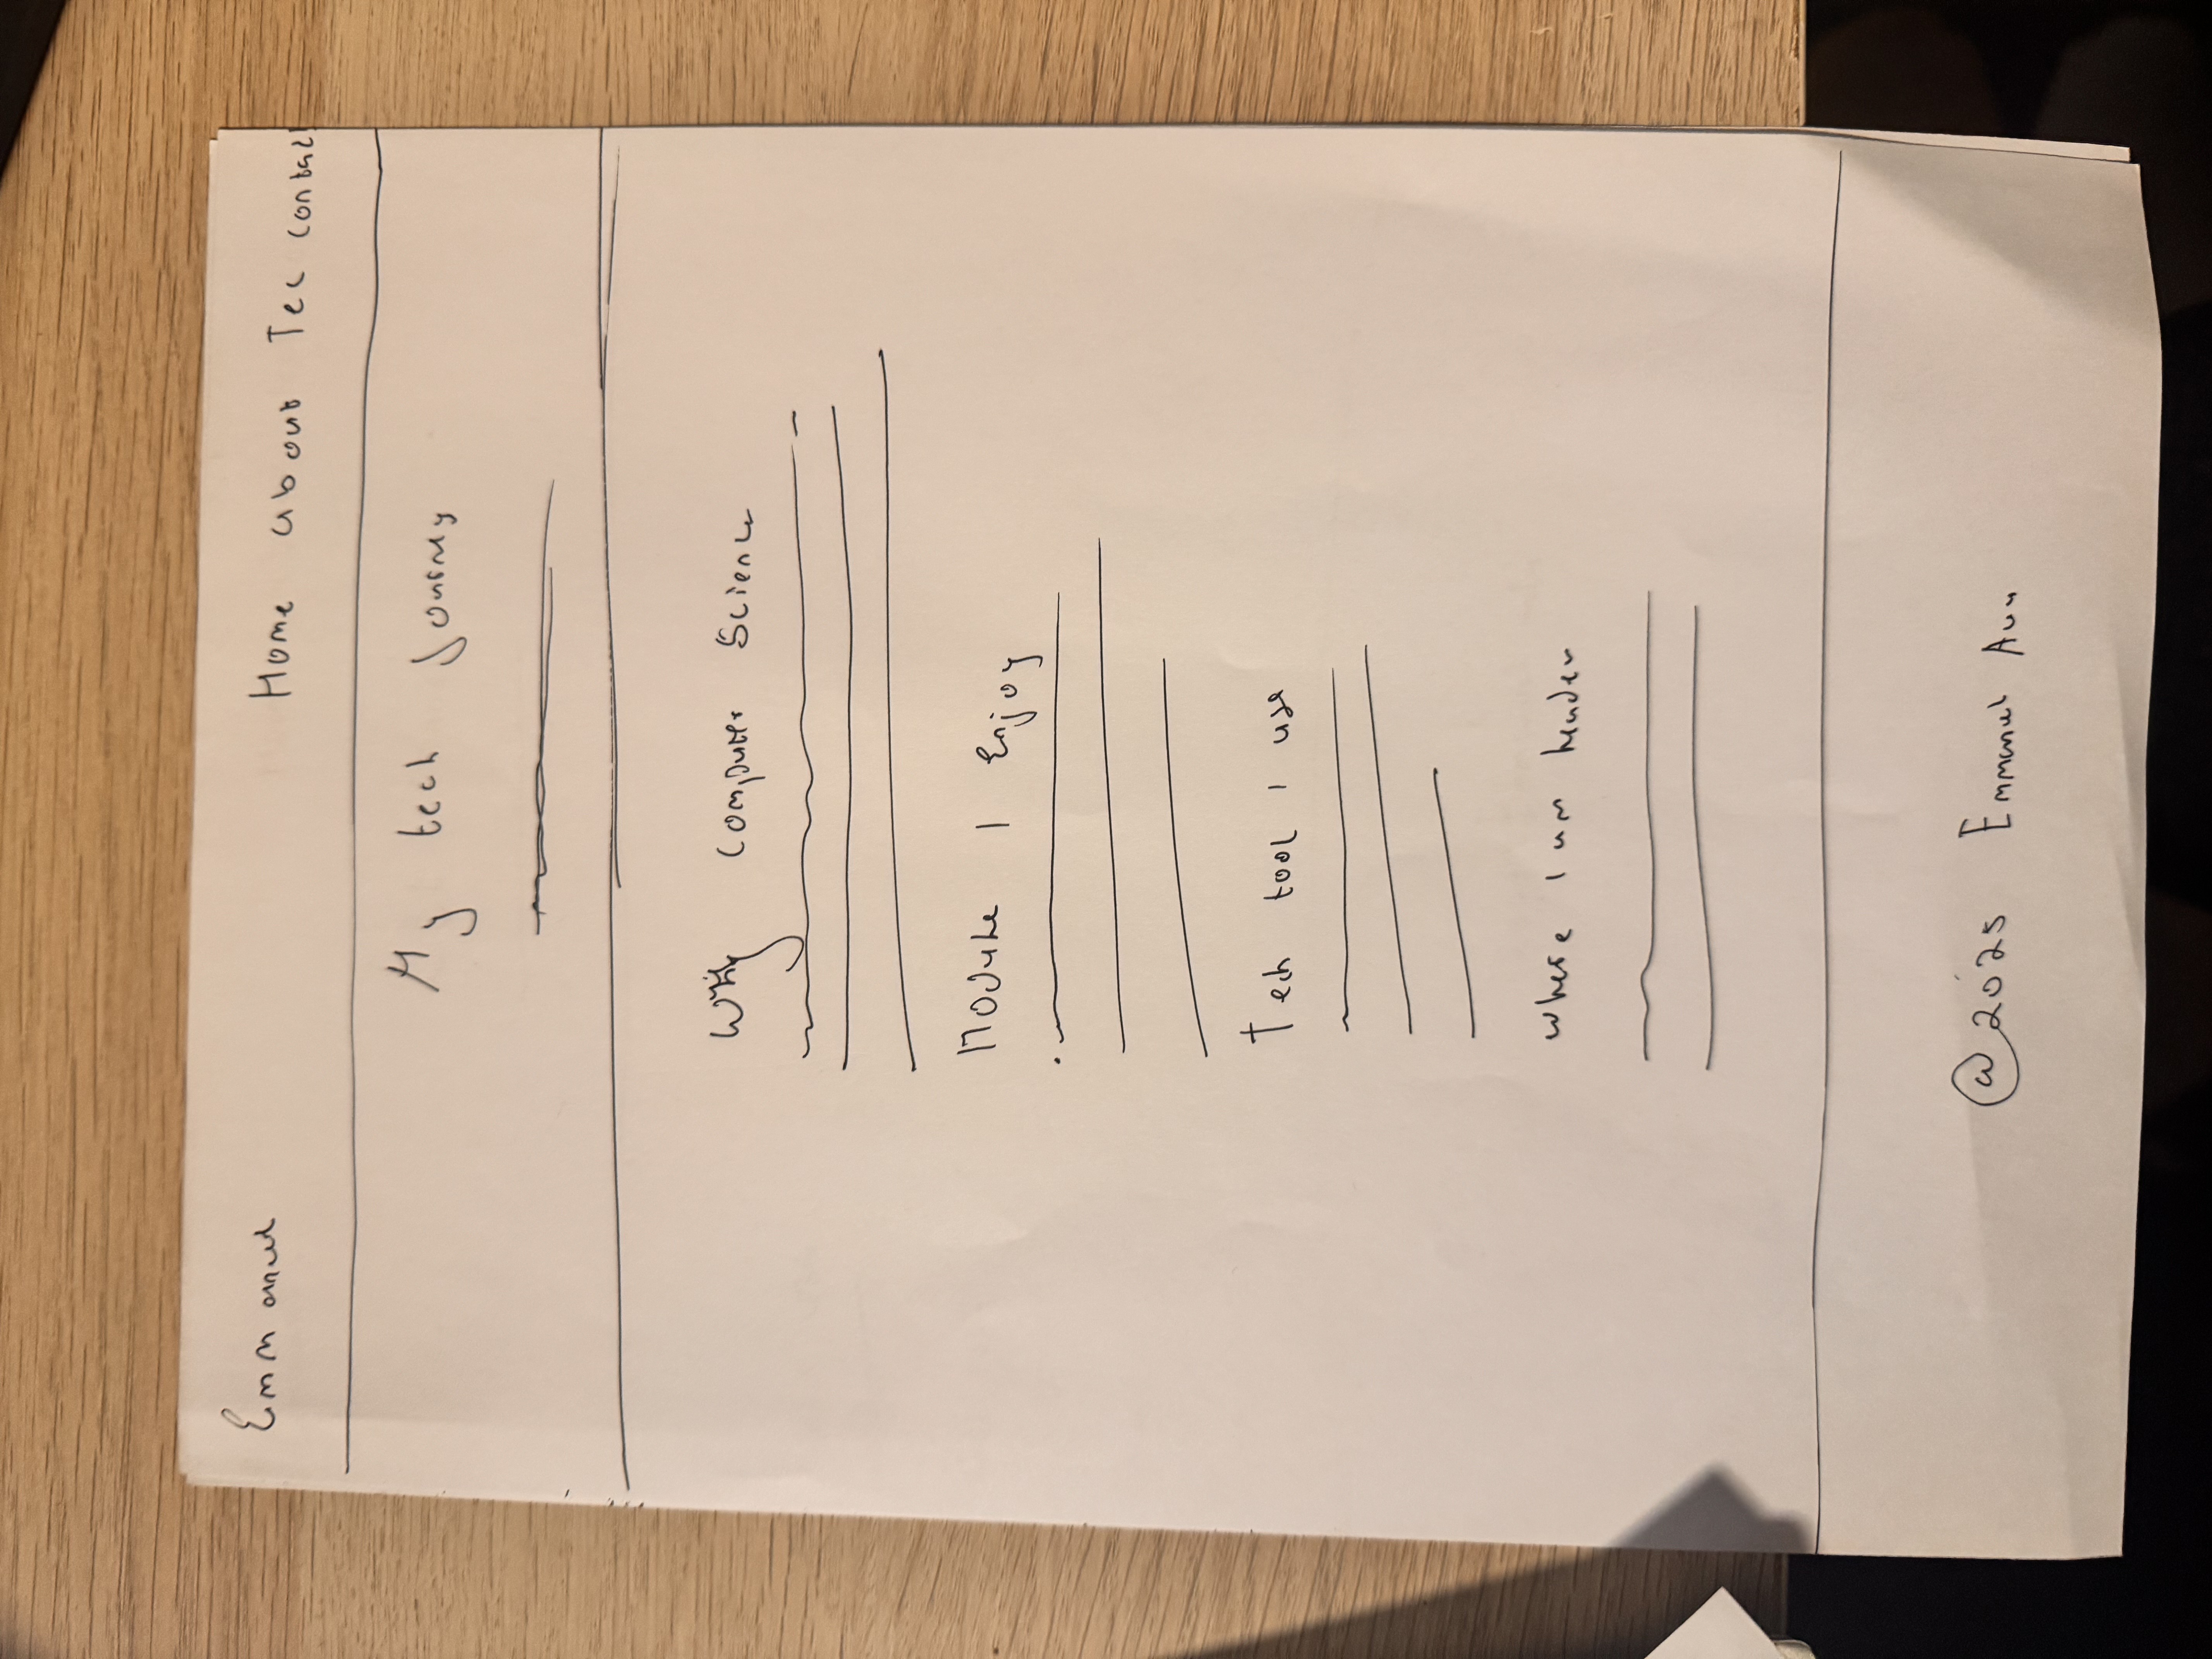 Emmanuel Home about Tec contact
My tech Journey
Why computer science
Module I Enjoy
Tech tool I use
where I am headen
@2025 Emmanuel